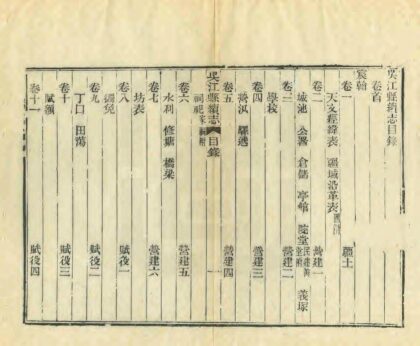 吳江縣續志目錄
卷首
宸翰
卷一 疆土
天文經緯表 疆域沿革表
卷二 營建一
城池 公署 倉儲 亭館 義塚
卷三 營建二
學校
卷四 營建三
營汛 驛遞
卷五 營建四
吳江縣續志 目錄 一
祠祀
卷六 營建五
水利 修築 橋梁
卷七 營建六
坊表
卷八 賦役一
蠲免
卷九 賦役二
丁口 田蕩
卷十 賦役三
賦額
卷十一 賦役四